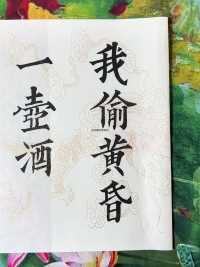 我偷黄昏
一壶酒